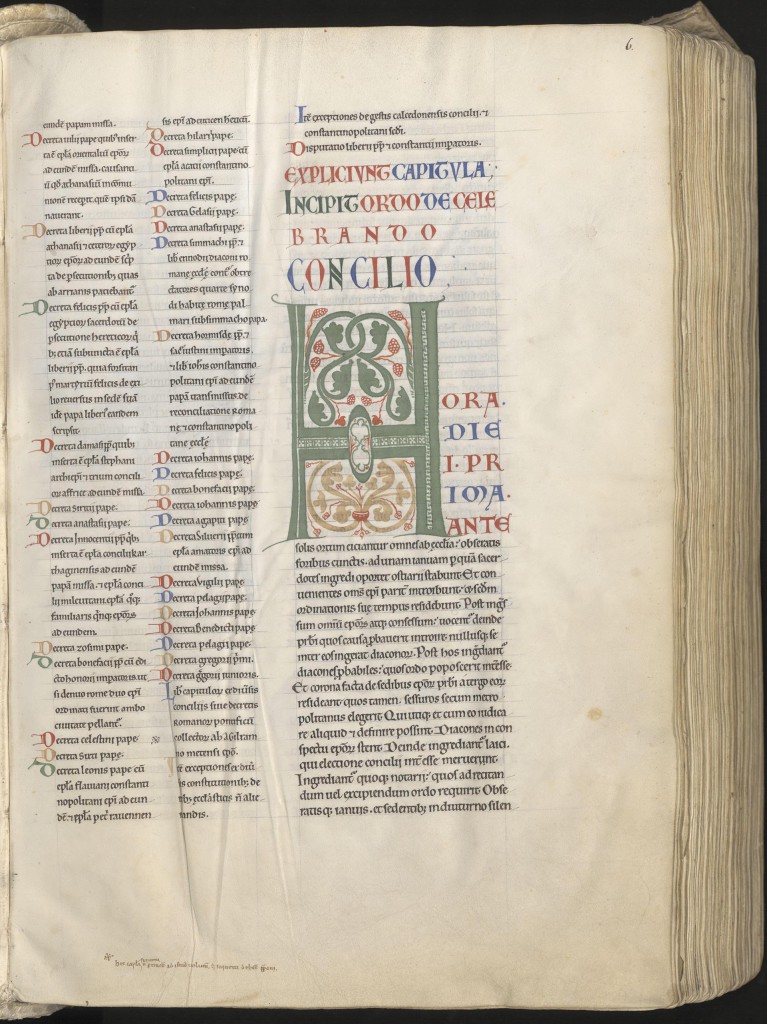 6.
eundē papam missa.
Decreta iulii pape quib; inser
ta ē epła orientaliū epōꝝ
ad eundē missa. causanti
ū qđ athanasiū in cōmu
nionē recepit. quē ipsi dā
nauerant.
Decreta liberii pp̄ cū epła
athanasii et ceteroꝝ egyp
tioꝝ epōꝝ ad eundē scīp
ta de psecutionib; quas
ab arrianis patiebant
Decreta felicis pp̄ cū epła
egyptioꝝ sacerdotū de
psecutione hereticoꝝ q̇
bi etiā subiuncta ē epła
liberii pp̄. quia
p̄ martyriū felicis de exi
lio reuersus in sedē suā
idē papa liberi eandem
scripsit.
Decreta damasi pp̄ quib;
inserta ē epła stephani
archiepi ⁊ triū concili
oꝝ affrice ad eundē missa.
Decreta siricii pape.
Decreta anastasii pape.
Decreta Innocentii pp̄ q̇b;
inserta ē epła concilii kar
thaginensis ad eundem
papā missa. ⁊ epła conci
lii mileuitani. epła q̄q;
familiaris q̇nq; epōꝝ
ad eundem.
Decreta zosimi pape.
Decreta bonefacii pp̄ cū edi
cto honorii imparoris. ut
si denuo rome duo epi
ordinati fuerint ambo
ciuitate pellant.
Decreta celestini pape
Decreta sixti pape
Decreta leonis pape cū
epła flauiani constanti
nopolitani epi ad eun
dē. ⁊ epła petri rauennen
sis epi ad euticen heticū.
Decreta hilari pape.
Decreta simplicii pape cū
epła acatii constantino
politani epi.
Decreta felicis papę.
Decreta Gelasii papę.
Decreta anastasii papę.
Decreta simmachi pp̄. ⁊
lib ennodii diaconi ro
mane ęcclę contˢ obtre
ctatores quarte syno
di habite rome pal
mari sub simmacho papa.
Decreta hormisdę pp̄. ⁊
sacˢ iustini imparoris.
⁊ lib iohis constantino
politani epi ad eundē
papā transmissus. de
reconciliatione Roma
nę ⁊ constantinopoli
tane ęcclę
Decreta iohannis papę.
Decreta felicis papę.
Decreta bonefacii papę
Decreta iohannis papę
Decreta agapiti papę
Decreta Siluerii pp̄. cum
epła amatoris epi ad
eundē missa.
Decreta Vigilii papę
Decreta pelagii papę.
Decreta Johannis papę
Decreta Benedicti papę
Decreta pelagii papę
Decreta gregorii p̄mi.
Decreta g̃gorii iunioris.
Lib capituloꝝ ex diūsis
conciliis siue decretis
Romanoꝝ pontificū
collectoꝝ ab āgilram
no metensi epō.
Itē exceptiones ex diū
sis constitutionib; de
reb; ecclasticis ñ alie
nandis.
Itē exceptiones de gestis calcedonensis concilii. ⁊
constantinopolitani sedi.
Disputatio liberii pp̄ ⁊ constantii imparoris.
EXPLICIUNT CAPITULA.
INCIPIT ORDO DE CELE
BRANDO
CONCILIO
HORA.
DIE
I. PR
IMA.
ANTE
solis ortum eiciantur omnes ab ęcclīa. obseratis
foribus cunctis. ad unam ianuam p quā sacer
dotes ingredi oportet ostiarii stabunt. Et con
uenientes oms epi pariter introibunt. ⁊ scdm
ordinationis suę tempus residebunt. Post ingˢs
sum omiū epōꝝ atq; consessum. uocent deinde
prbi quos causa phauerit introire. nullusq; se
inter eos ingerat diaconoꝝ. Post hos ingˢdiant
diacones phabiles. quos ordo poposcerit intēsse.
Et corona facta de sedibus epōꝝ. prbi a tergo eoꝝ
resideant. quos tamen sessuros secum metro
politanus elegerit. Qui utiq; et cum eo iudica
re aliquid ⁊ definire possint. Diacones in con
spectu epōꝝ stent. Deinde ingrediant laici.
qui electione concilii intēesse meruerint.
Ingrediant quoq; notarii. quos ad recitan
dum uel excipiendum ordo requirit. Obse
ratisq; ianuis. et sedentib; in diuturno silen